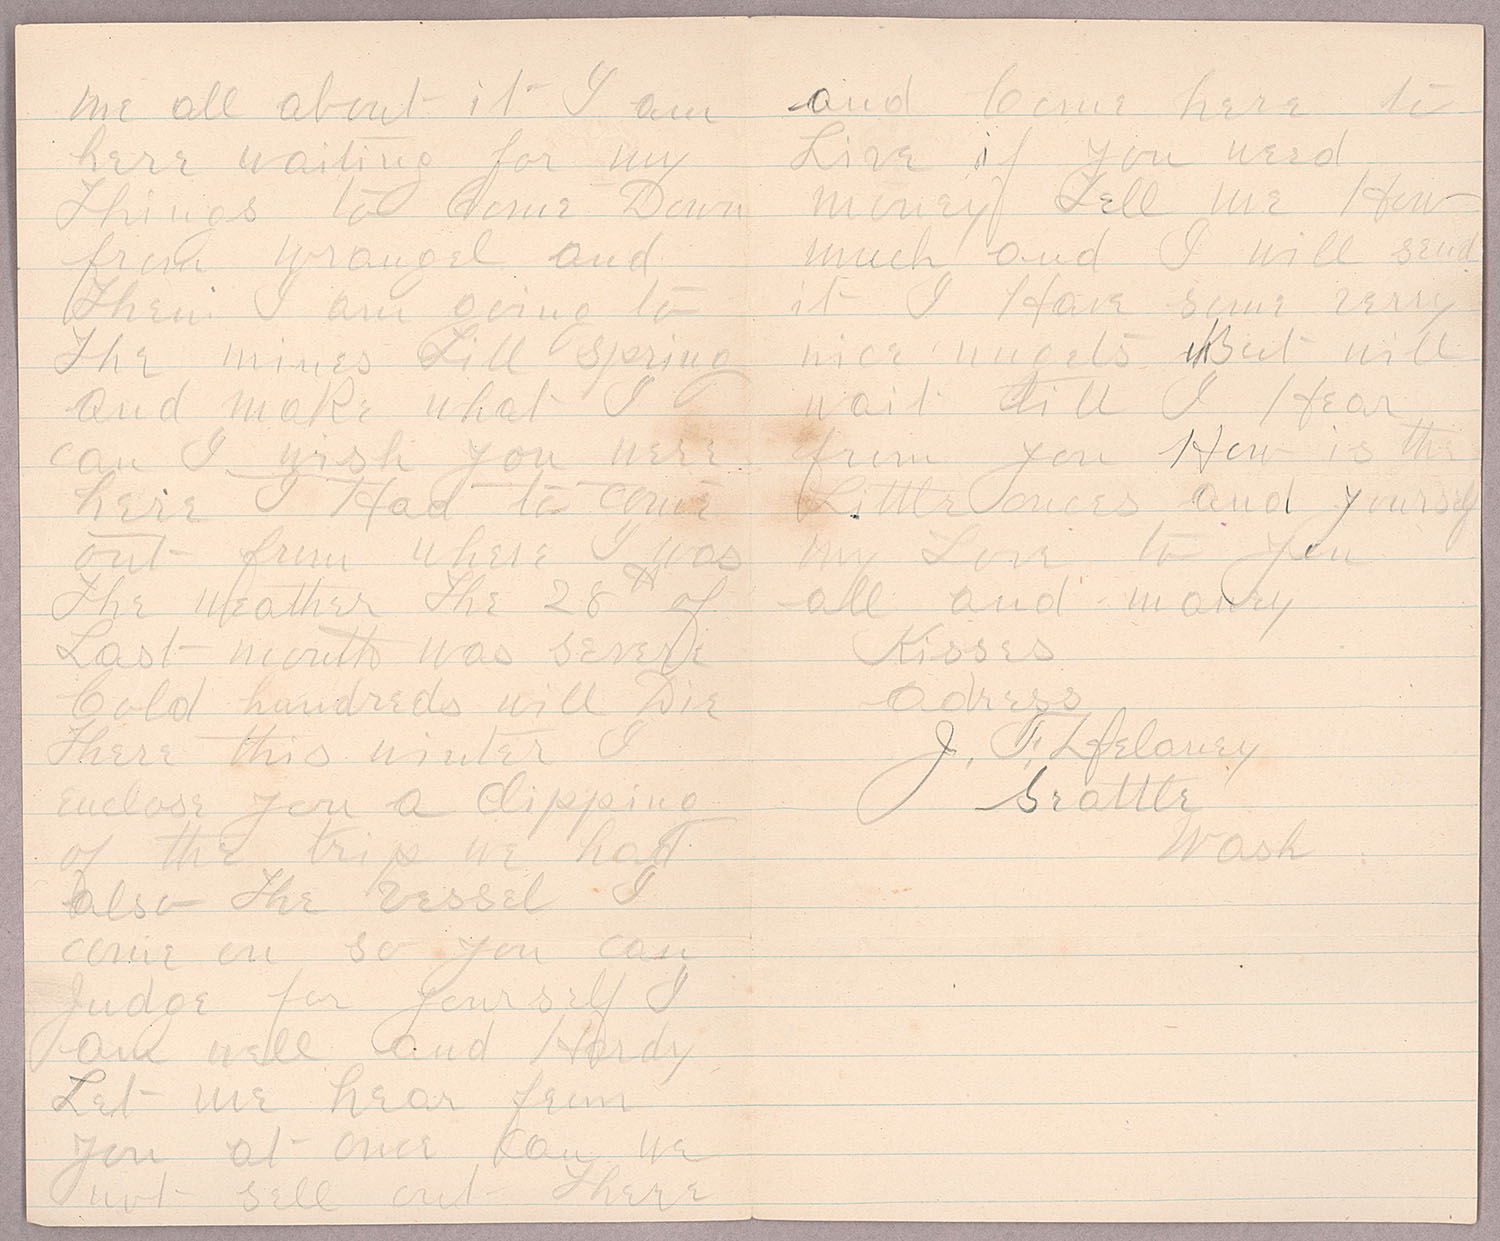 me all about it I am
here waiting for my
Things to Come Down
from Wrangel and
Then I am going to
The mines Till spring
and make what I
can I wish you were
here I Had to come
out from where I was
The weather The 28th of
Last month was severe
Cold hundreds will Die
There this winter I
enclose you a clipping
of the trip we had
also The vessel I
come on so you can
Judge for yourself I
am well and Hardy
Let me hear from
you at once can we
not sell out There
and Come here to
Live if you need
money Tell me How
much and I will send
it I Have some verry
nice nugets But will
wait till I Hear
from you How is the
Little onces and yourself
my Love to you
all and maney
Kisses
adress
J. F. Delaney
Seattle
Wash.